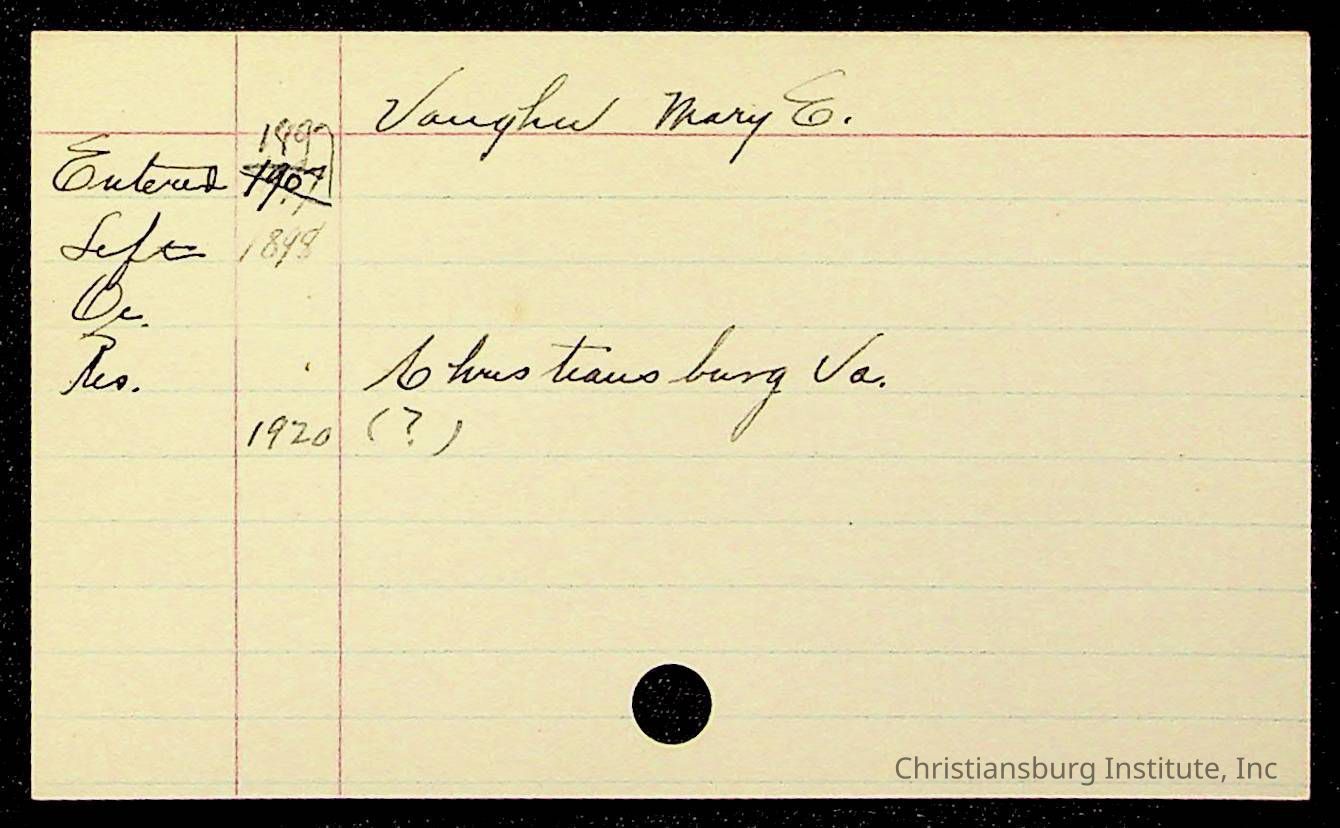 Vaughn Mary E.
1897
Entered 1907
Left 1898
Oc.
Res. Christiansburg Va.
1920 (?)
Christiansburg Institute, Inc